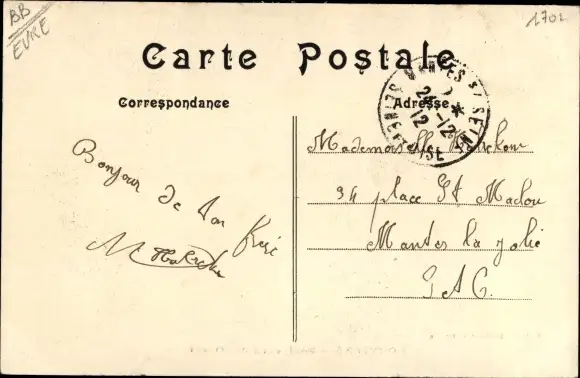 BB
EURE
1702
Carte Postale
Correspondance
Adresse
MANTES S/ SEINE
24-12
12
SEINE-ET-OISE
Bonjour de ton frère
M
Mademoiselle
34 place St Maclou
Mantes la Jolie